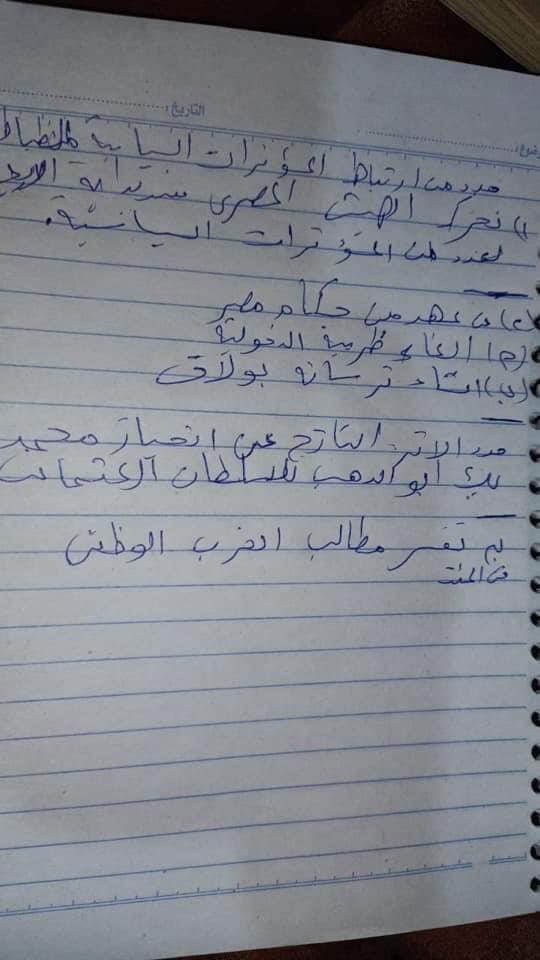 التاريخ:
حدد من ارتباط المؤثرات السياسية
١) تحرك الجيش المصرى منذ بداية
لعدد من المؤثرات السياسية.
(٢) فى عهد من حكام مصر
(م) الغاء ضريبة الدخولية
(ب) انشاء ترسانة بولاق
حدد الاثر الناتج عن انحياز محمد
بك أبو الدهب للسلطان العثمانى
بم تفسر مطالب الحزب الوطنى